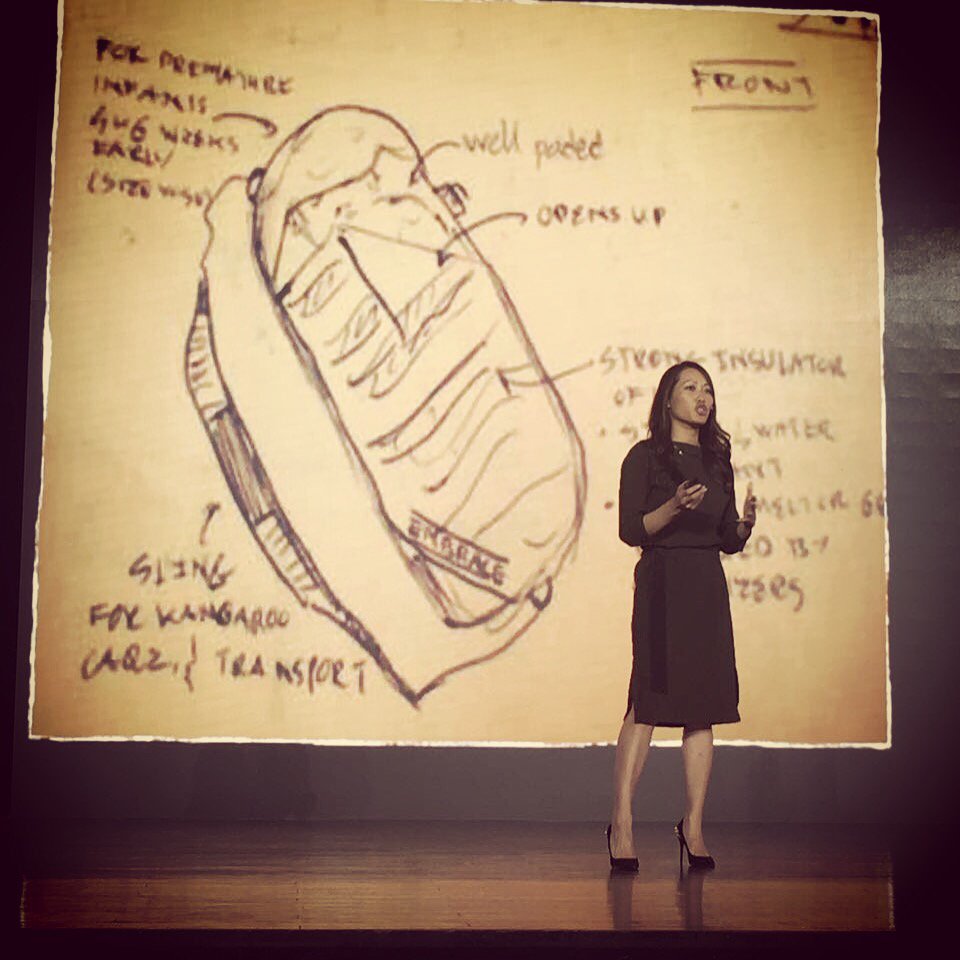 FRONT
FOR PREMATURE
INFANTS
4-6 WEEKS
EARLY
(SIZE WISE)
well padded
OPENS UP
STRONG INSULATOR
OF
WATER
EMBRACE
SLING
FOR KANGAROO
CARE, } TRANSPORT